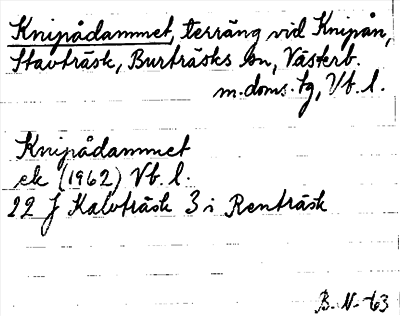 Knipådammet, terräng vid Knipån,
Stavträsk, Burträsks sn, Västerb.
m.doms.tg, Vb. l.
Knipådammet
ek (1962) Vb. l.
22 J Kalvträsk 3 i Renträsk
B. N. -63